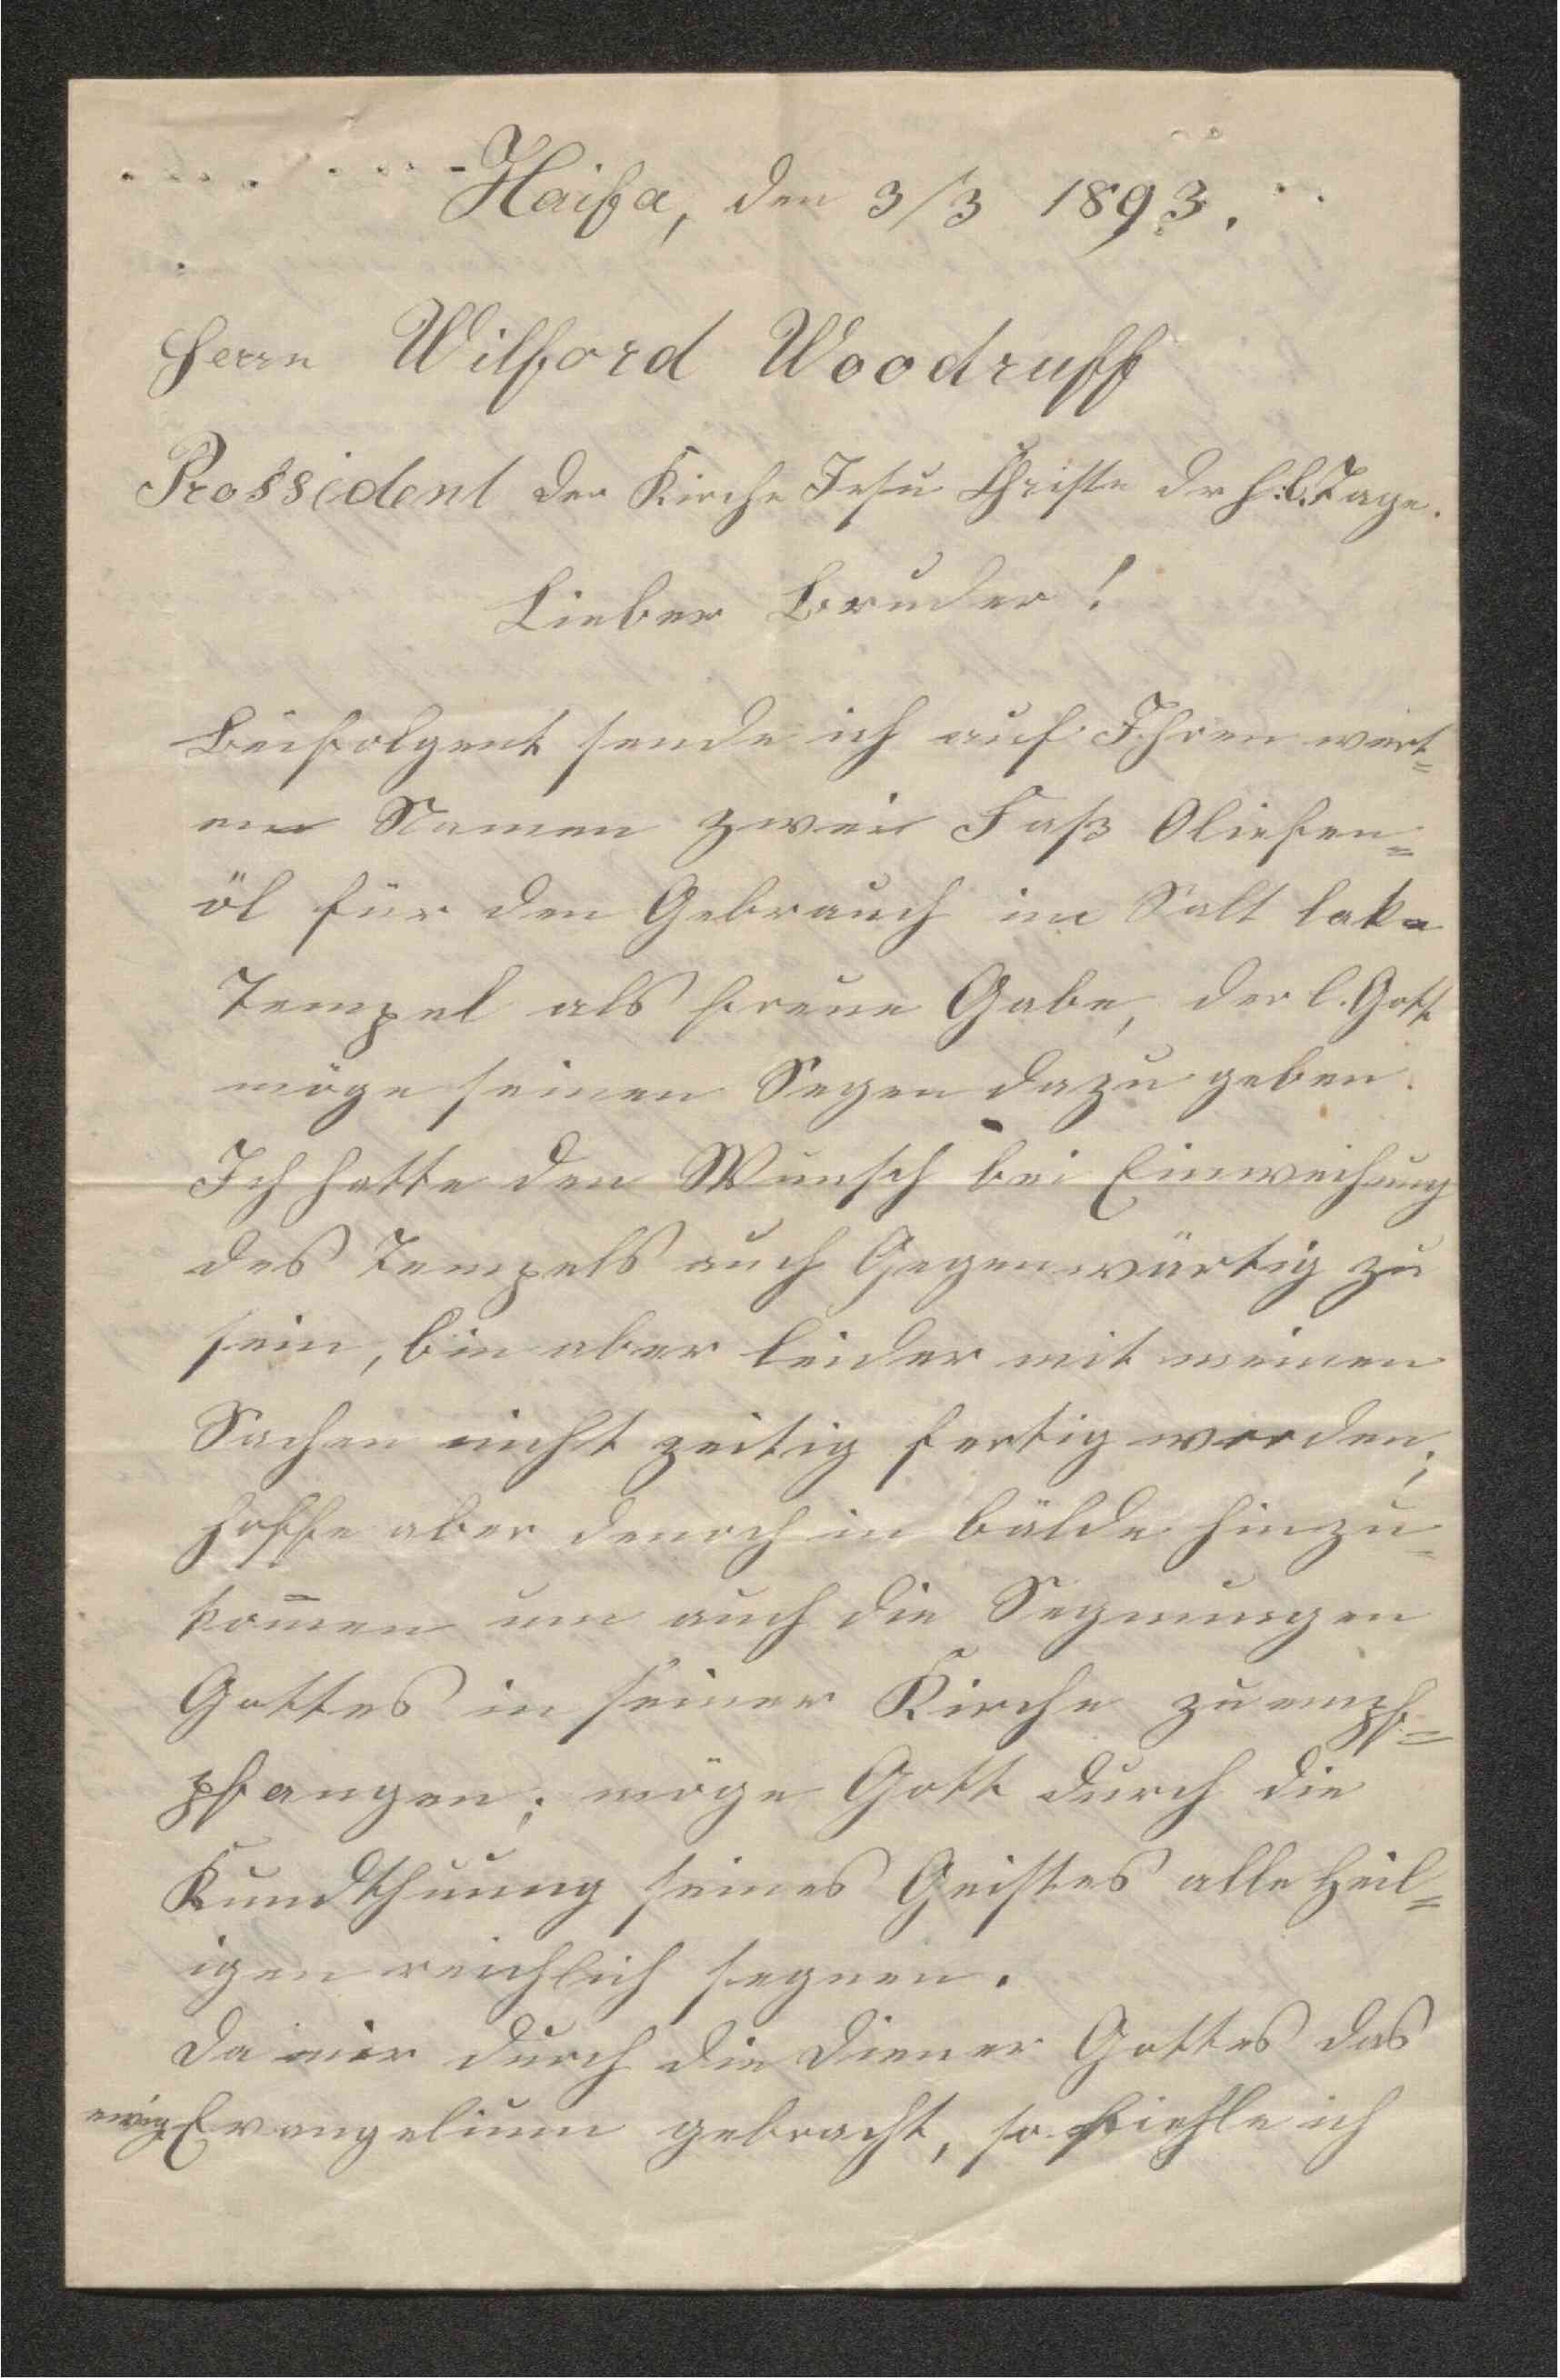 Haifa, den 3/3 1893.
Herrn Wilford Woodruff
Prossident der Kirche Jesu Christe der h. l. Tage.
Lieber Bruder!
Beifolgent sende ich auf Ihren wert=
en Namen zwei Faß Oliefen=
öl für den Gebrauch im Salt lake
Tempel als freue Gabe, der l. Gott
möge seinen Segen dazu geben.
Ich hatte den Wunsch bei Einweihung
des Tempels auch Gegenwärtig zu
sein, bin aber leider mit meinen
Sachen nicht zeitig fertig worden;
hoffe aber denoch in bälde hinzu=
kom̄en um auch die Segnungen
Gottes in seiner Kirche zu empf=
pfangen; möge Gott durch die
Kundthuung seines Geistes alle Heil=
igen reichlich segnen.
Da mir durch die Diener Gottes das
ewige Evangelium gebracht, so fiehle ich